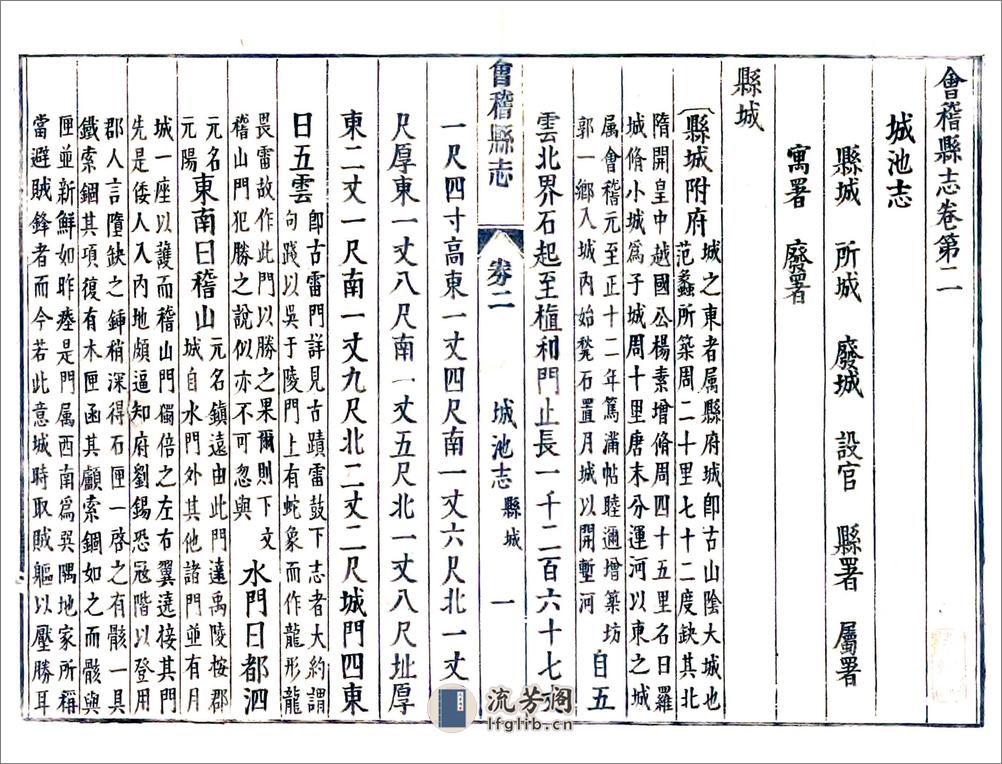 會稽縣志卷第二
城池志
縣城 所城 廢城 設官 縣署 屬署
寓署 廢署
縣城
縣城附府
城之東者属縣府城卽古山陰大城也
范蠡所築周二十里七十二度缺其北
隋開皇中越國公楊素增脩周四十五里名曰羅
城脩小城爲子城周十里唐末分運河以東之城
属會稽元至正十二年篤滿帖睦邇增築坊
郭一鄉入城內始甃石置月城以開塹河
自五
雲北界石起至植利門止長一千二百六十七
會稽縣志 卷二 城池志 縣城 一
一尺四寸高東一丈四尺南一丈六尺北一丈
尺厚東一丈八尺南一丈五尺北一丈八尺址厚
東二丈一尺南一丈九尺北二丈二尺城門四東
曰五雲
卽古雷門詳見古蹟雷鼓下志者大約謂
句踐以吳于陵門上有蛇象而作龍形龍
畏雷故作此門以勝之果爾則下文
稽山門犯勝之說似亦不可忽與
水門曰都泗
元名
元陽
東南曰稽山
元名鎮遠由此門達禹陵按郡
城自水門外其他諸門並有月
城一座以護而稽山門獨倍之左右翼遶接其門
先是倭人入內地頗逼知府劉錫恐冦階以登用
郡人言隳缺之鍤稍深得石匣一啓之有骸一具
鐵索錮其項復有木匣函其顱索錮如之而骸與
匣並新鮮如昨瘞是門属西南爲巽隅地家所稱
當避賊鋒者而今若此意城時取賊軀以壓勝耳
流芳閣
lfglib.cn